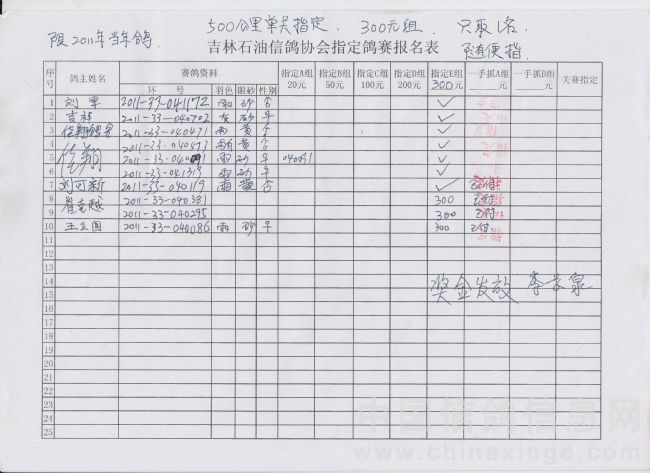 500公里单关指定. 300元组. 只取1名.
限2011年当年鸽
吉林石油信鸽协会指定鸽赛报名表
随便指
序号 鸽主姓名 赛鸽资料 指定A组 20元 指定B组 50元 指定C组 100元 指定D组 200元 指定E组 300元 一手抓A组 ____元 一手抓B组 ____元 关赛指定
环 号 羽色 眼砂 性别
1 刘军 2011-33-041172 雨 砂 ✓
2 吉祥 2011-33-040702 灰 砂 ✓
3 任翔鸽舍 2011-33-040471 雨 黄 ✓
4 2011-33-040473 雨 黄 ✓
5 任翔 2011-33-040091 雨 砂 040091 ✓
6 2011-33-041319 雨 砂 ✓
7 刘可新 2011-33-040119 雨 黄 ✓ 已付
8 崔克越 2011-33-040381 300 已付
9 2011-33-040295 300 已付
10 王立国 2011-33-040086 雨 砂 300 已付
11
12
13
14
奖金发放 李长泉
15
16
17
18
19
20
21
22
23
24
25
中国信鸽信息网
www.chinaxinge.com